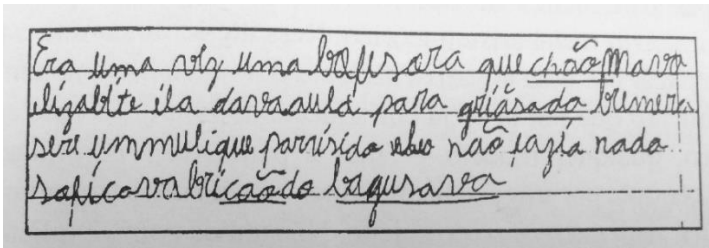 Era uma viz uma bofisora que chãomava
elizabite ila davaaula para griãsada brimera
seri ummulique parrisido não fazia nada
sofícavabricãodo bagusava